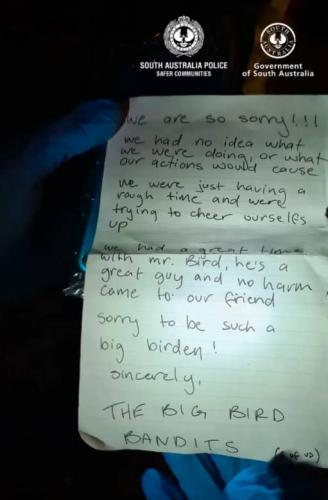 SOUTH AUSTRALIA POLICE
SAFER COMMUNITIES
Government
of South Australia
we are so sorry!!!
we had no idea what
we were doing, or what
our actions would cause
we were just having a
rough time and were
trying to cheer ourselves
up
we had a great time
with mr. Bird, he's a
great guy and no harm
came to our friend
sorry to be such a
big birden!
sincerely,
THE BIG BIRD
BANDITS
of us)